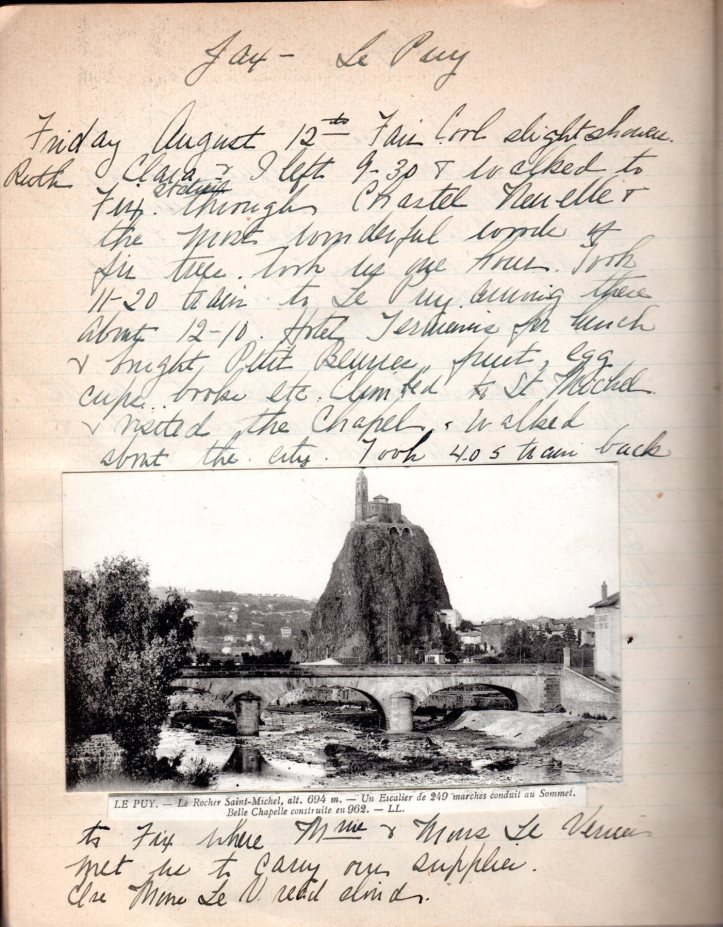 Jax - Le Puy
Friday August 12th Fair Cool slight shower.
Ruth Clara & I left 9-30 & walked to
Fix through Chastel Neuelle &
the most wonderful woods of
fir trees. took us one hour. Took
11-20 train to Le Puy, arriving there
about 12-10. Hotel Terminus for lunch
& bought Petit Beurres, fruit, egg
cups, books etc. Climbed to St Michel
& visited the Chapel, & walked
about the city. Took 4.05 train back
LE PUY. — Le Rocher Saint-Michel, alt. 694 m. — Un Escalier de 249 marches conduit au Sommet.
Belle Chapelle construite en 962. — LL.
to Fix where Mme & Mons Le
met us to carry our supplies.
Mme Le V. read aloud.